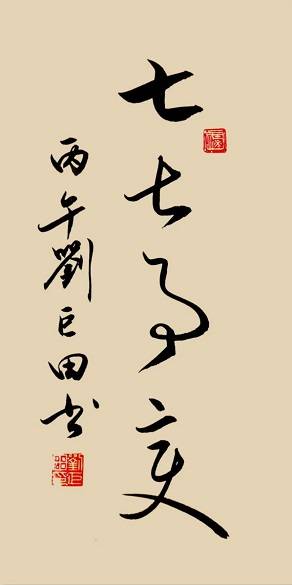 七七事变
丙午劉巨田书